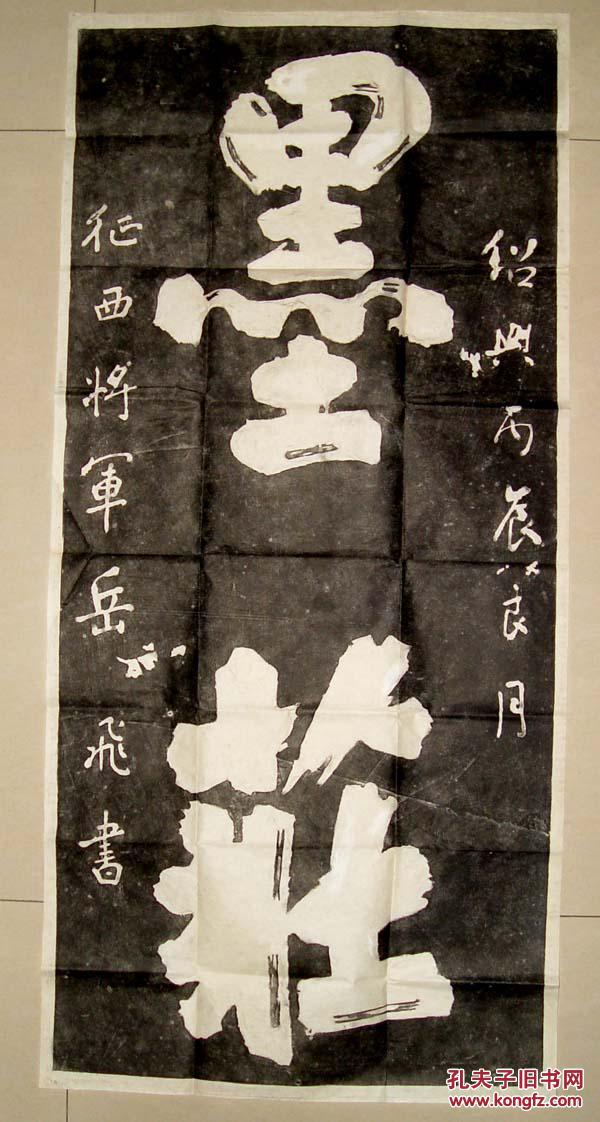 紹興丙辰良月
墨莊
征西將軍岳飛書
孔夫子旧书网
www.kongfz.com